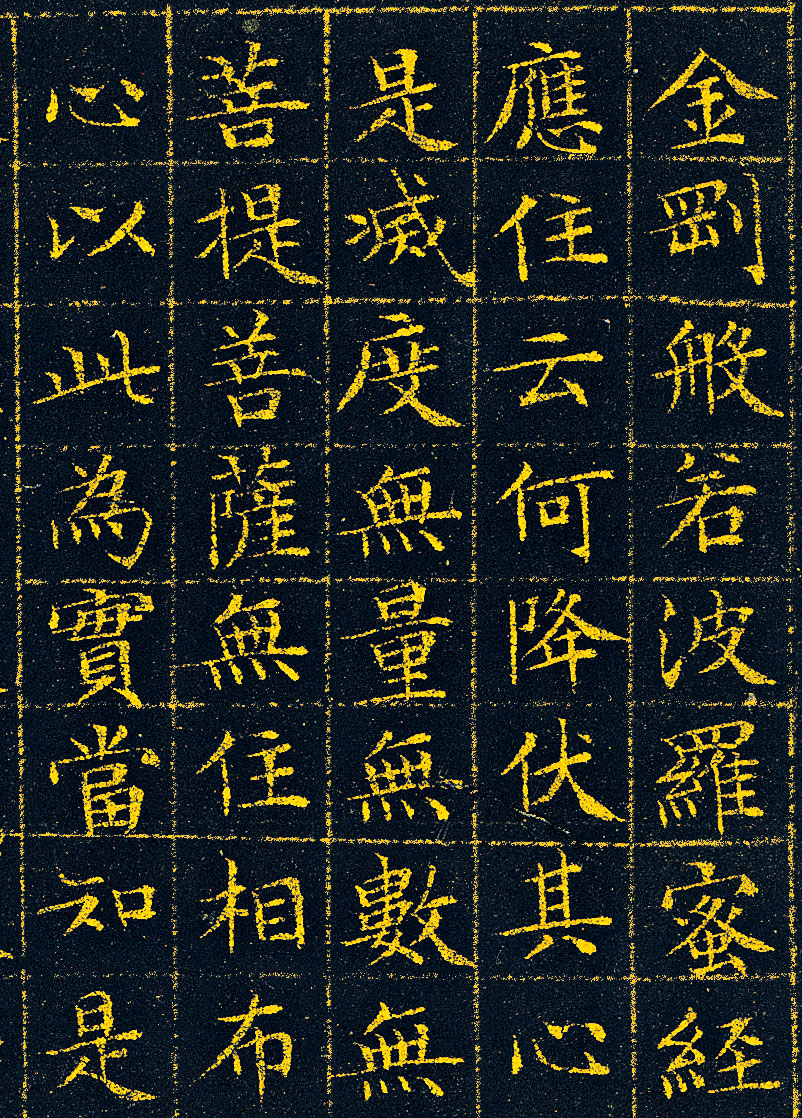 金剛般若波羅蜜經
應住云何降伏其心
是滅度無量無數無
菩提菩薩無住相布
心以此為實當知是